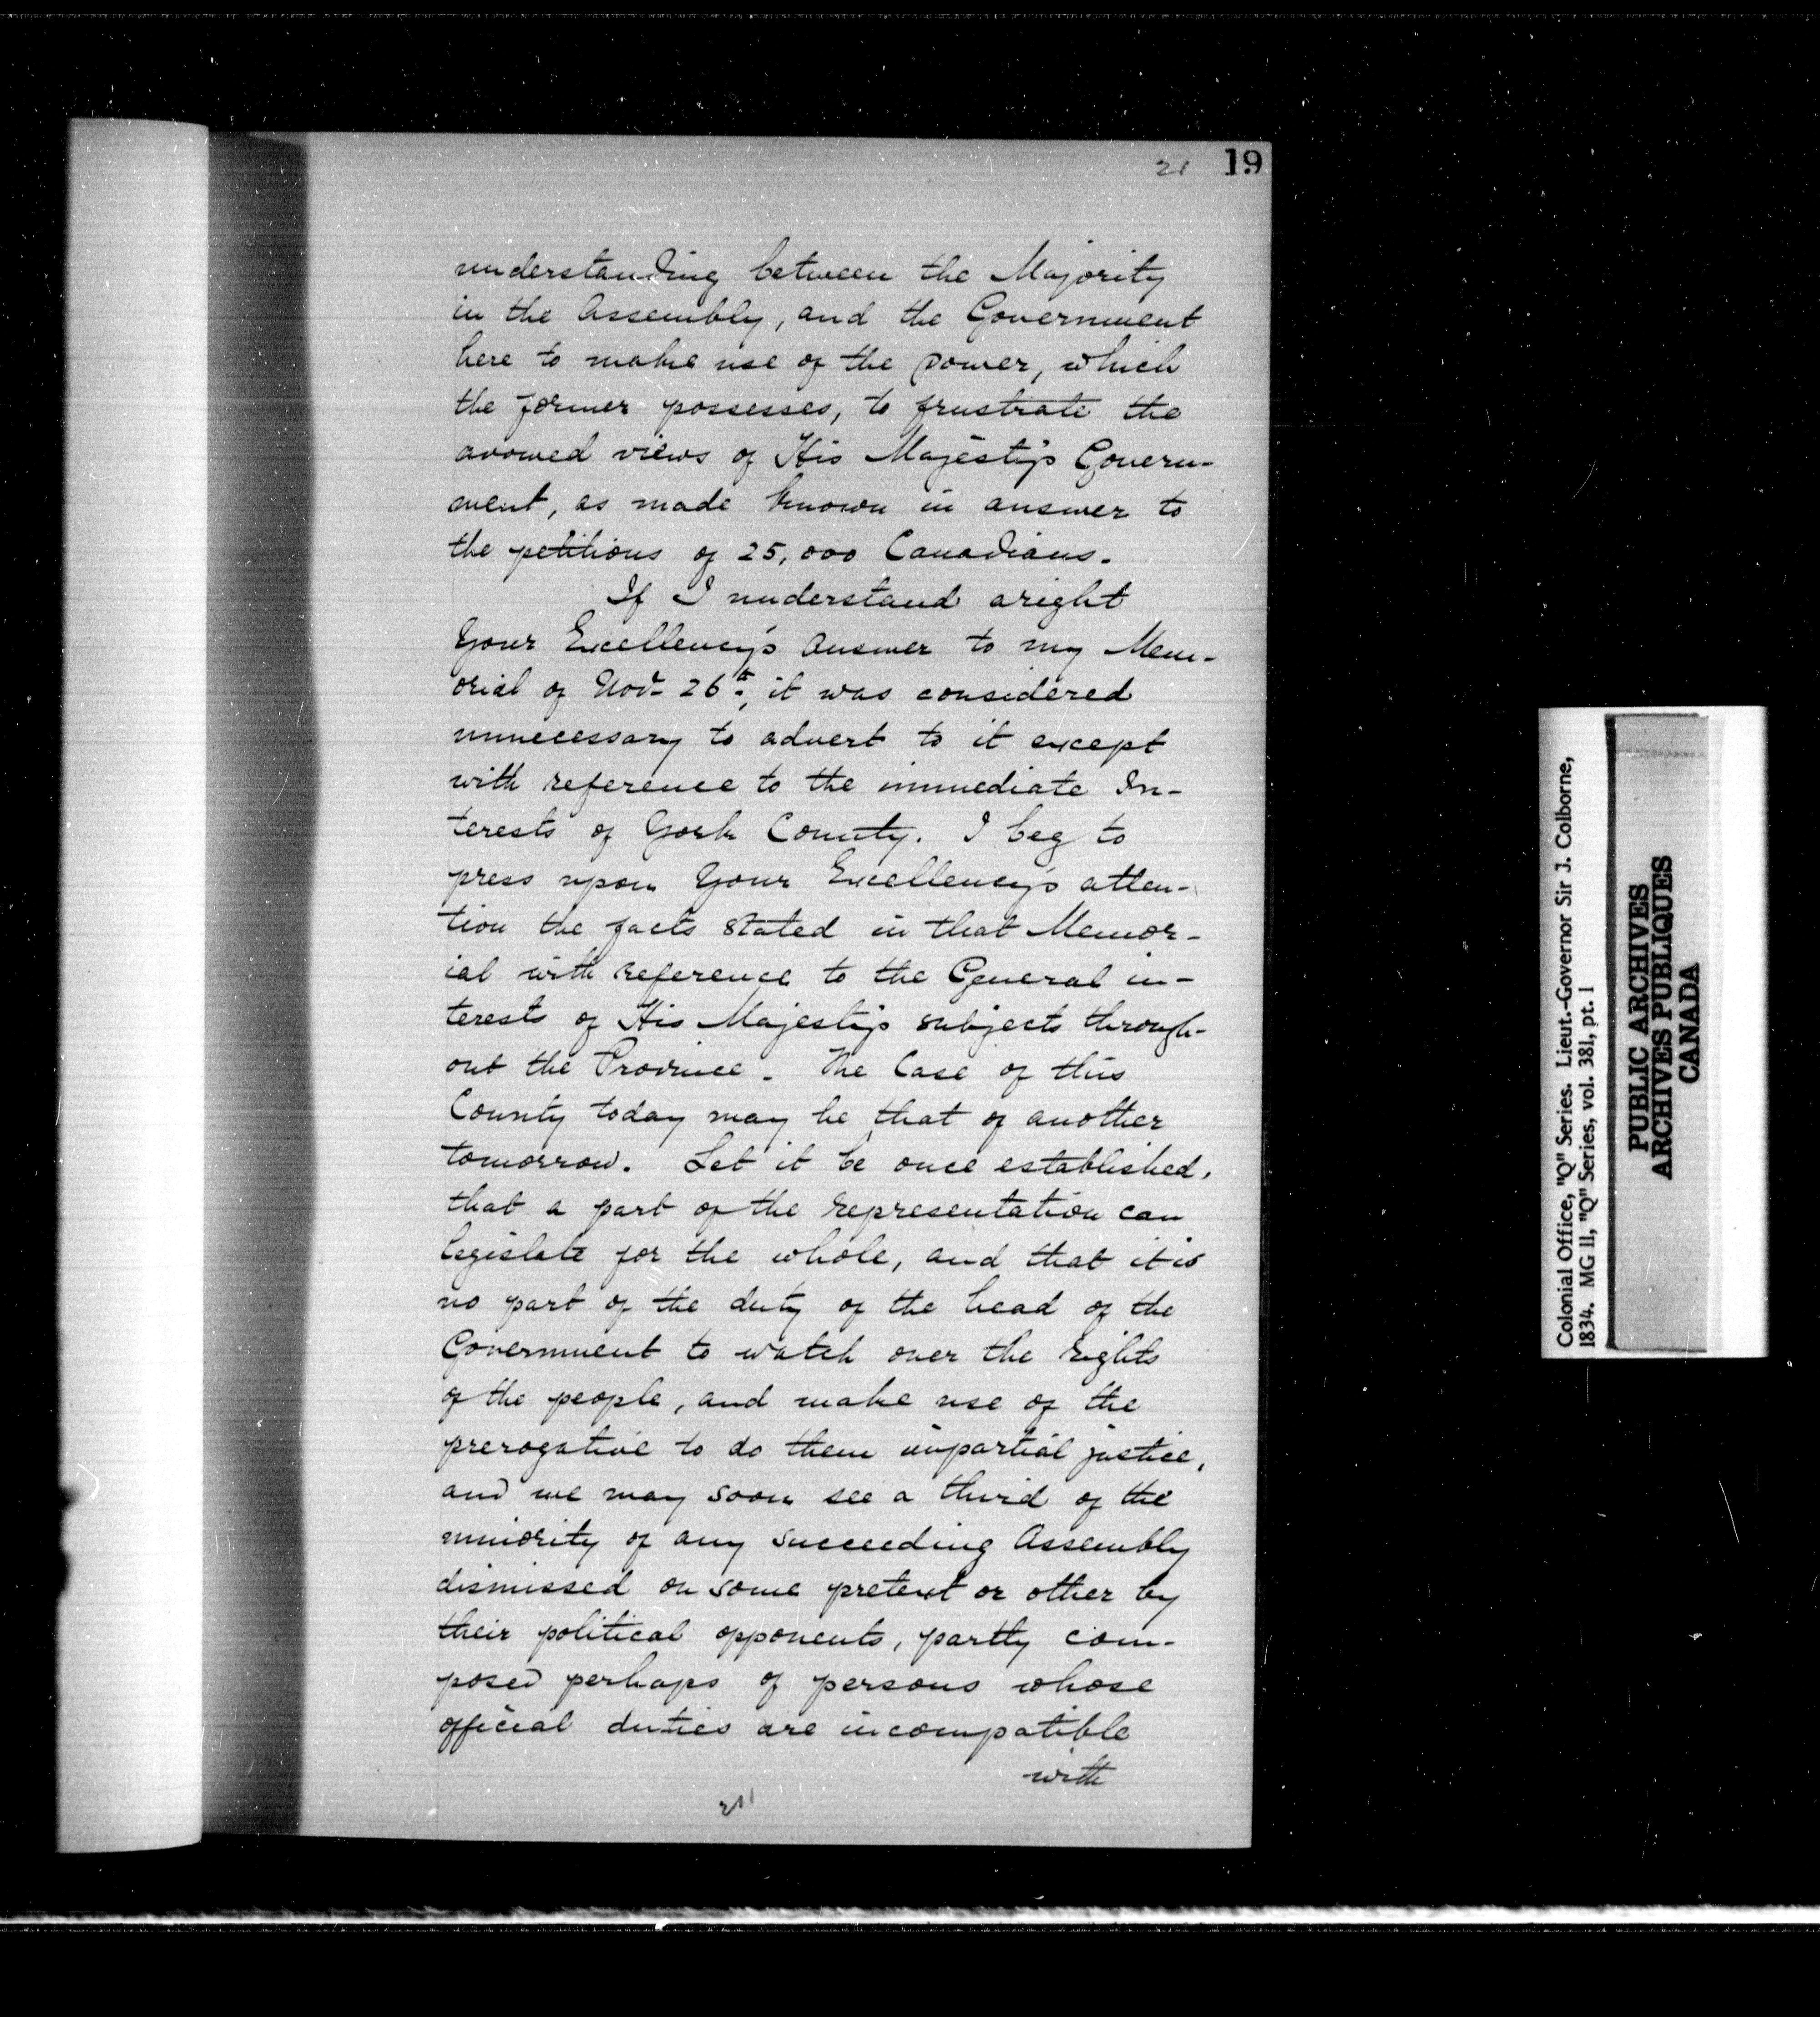 21 19
understanding between the Majority
in the Assembly, and the Government
here to make use of the power, which
the former possesses, to frustrate the
avowed views of His Majesty's Govern-
ment, as made known in answer to
the petitions of 25,000 Canadians.
If I understand aright
Your Excellency's answer to my Mem-
orial of Nov. 26th, it was considered
unnecessary to advert to it except
with reference to the immediate In-
terests of York County. I beg to
press upon Your Excellency's atten-
tion the facts stated in that Memor-
ial with reference to the General in-
terests of His Majesty's subjects through-
out the Province. The Case of this
County today may be that of another
tomorrow. Let it be once established,
that a part of the representation can
legislate for the whole, and that it is
no part of the duty of the head of the
Government to watch over the rights
of the people, and make use of the
prerogative to do them impartial justice,
and we may soon see a third of the
minority of any succeeding Assembly
dismissed on some pretext or other by
their political opponents, partly com-
posed perhaps of persons whose
official duties are incompatible
with
Colonial Office, "Q" Series. Lieut.-Governor Sir J. Colborne,
1834. MG 11, "Q" Series, vol. 381, pt. 1
PUBLIC ARCHIVES
ARCHIVES PUBLIQUES
CANADA